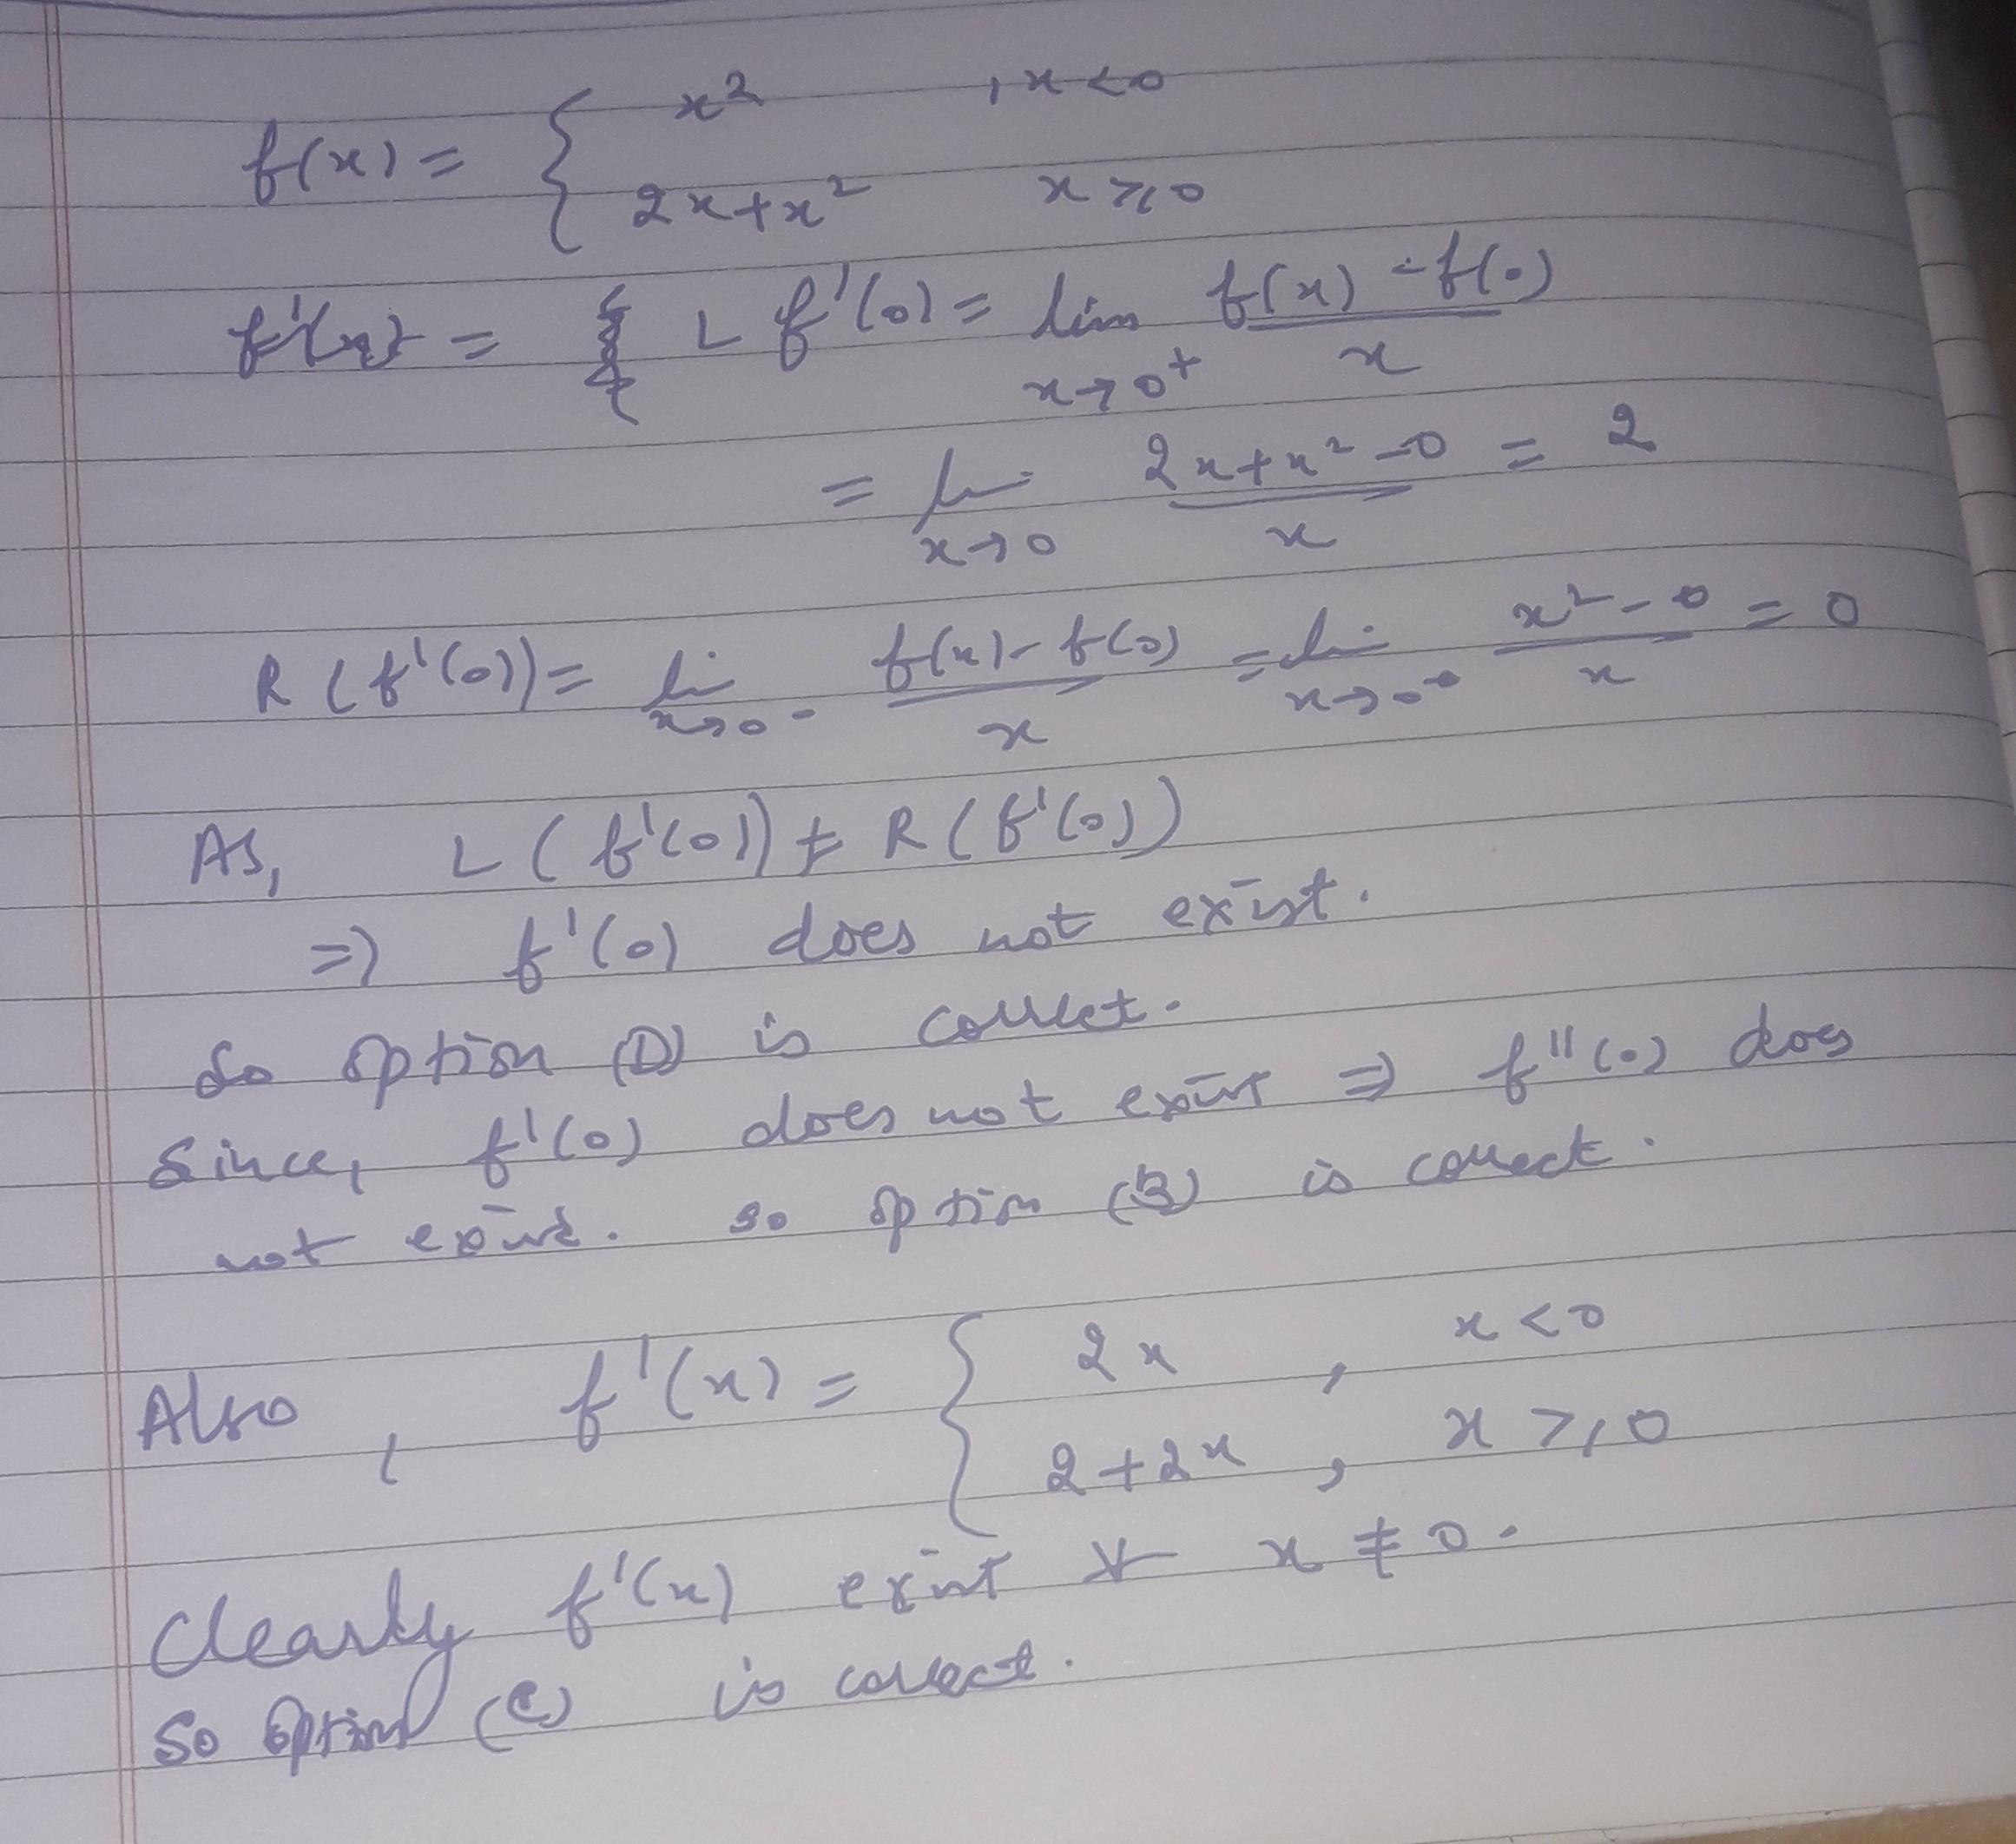 f(x) = { x² , x < 0
2x+x² x ≥ 0
L f'(0) = lim x→0⁺ f(x) - f(0) / x
= li x→0 2x+x²-0 / x = 2
R (f'(0)) = li x→0⁻ f(x) - f(0) / x = li x→0⁻ x²-0 / x = 0
As, L (f'(0)) ≠ R (f'(0))
⇒ f'(0) does not exist.
So option (D) is correct.
Since, f'(0) does not exist ⇒ f''(0) does
not exist. so option (B) is correct.
Also, f'(x) = { 2x , x < 0
2+2x , x ≥ 0
Clearly f'(x) exist ∀ x ≠ 0.
So option (C) is correct.